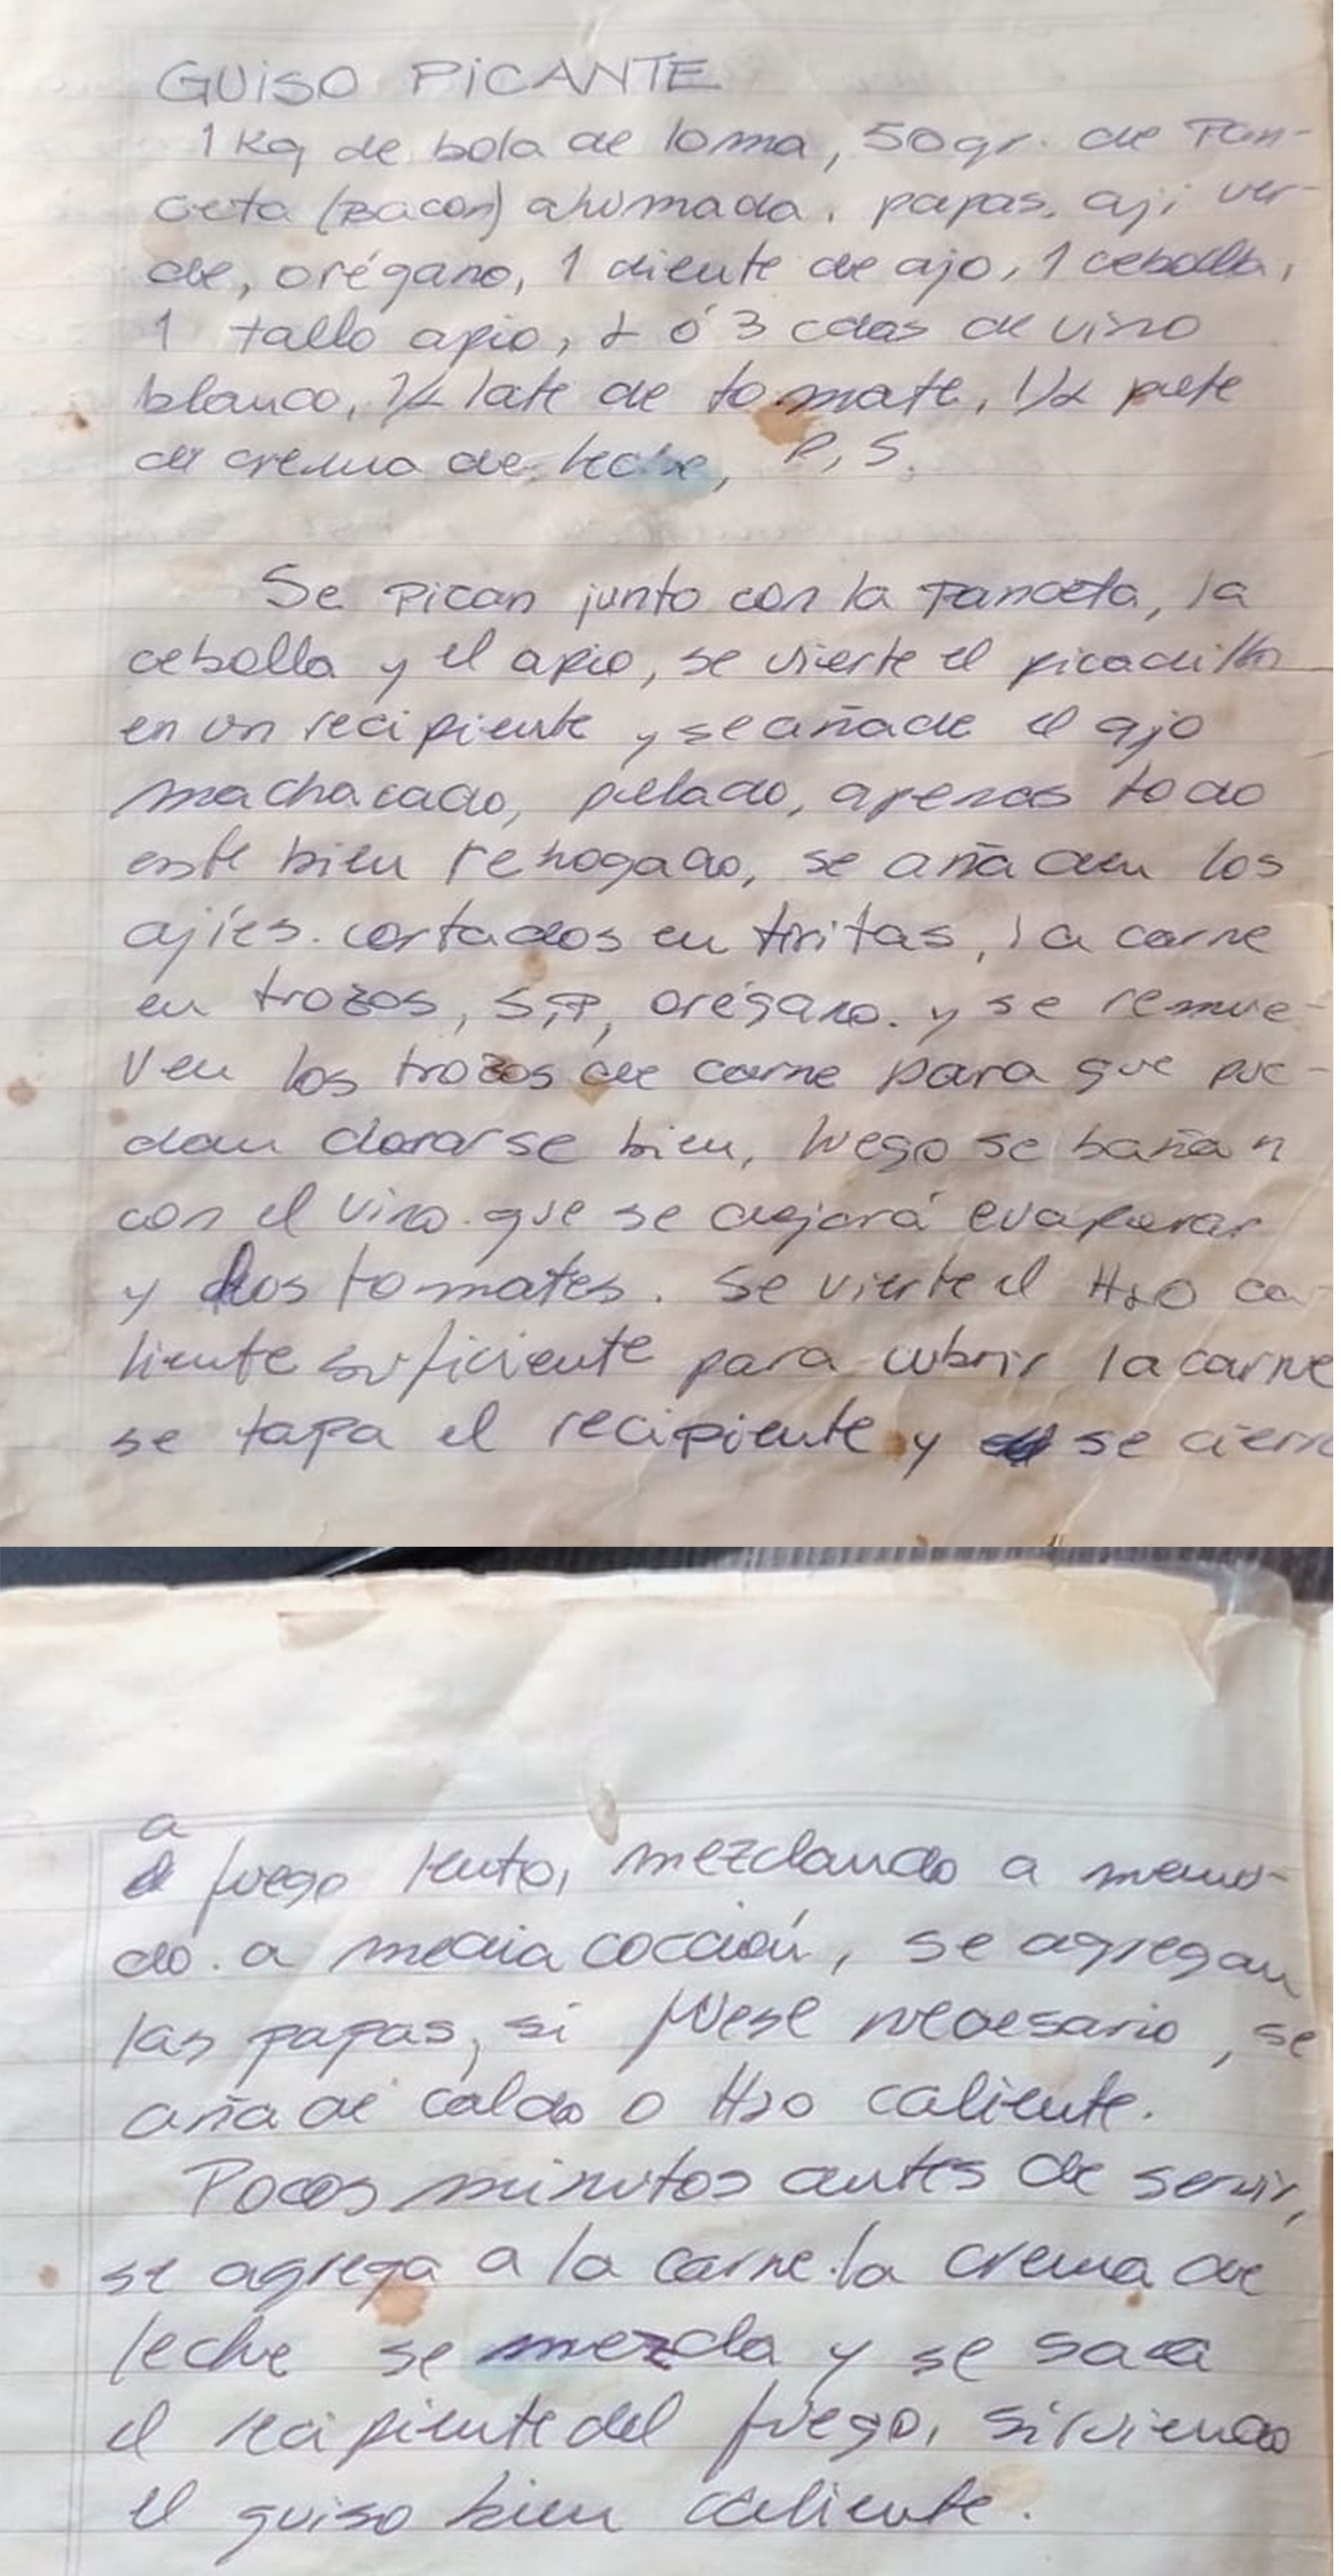 GUISO PICANTE
1 Kg de bola de loma, 50 gr. de Pan-
ceta (Bacon) ahumada. papas. ají ver-
de, orégano, 1 diente de ajo, 1 cebolla,
1 tallo apio, 2 ó 3 cdas de vino
blanco, 1/2 late de tomate, 1/2 pote
de crema de leche, P, S.
Se Pican junto con la Panceta, la
cebolla y el apio, se vierte el picadillo
en un recipiente y se añade el ajo
machacado, pelado, apenas todo
este bien rehogado, se añaden los
ajíes. cortados en tiritas, la carne
en trozos, S,P, orégano. y se remue-
ven los trozos de carne para que pue-
dan dorarse bien, luego se bañan
con el vino que se dejará evaporar
y los tomates. Se vierte el H2O ca-
liente suficiente para cubrir la carne
se tapa el recipiente y se cierra
a fuego lento, mezclando a menu-
do. a media cocción, se agregan
las papas, si fuese necesario, se
añade caldo o H2O caliente.
Pocos minutos antes de servir,
se agrega a la carne. la crema de
leche se mezcla y se saca
el recipiente del fuego, sirviendo
el guiso bien caliente.